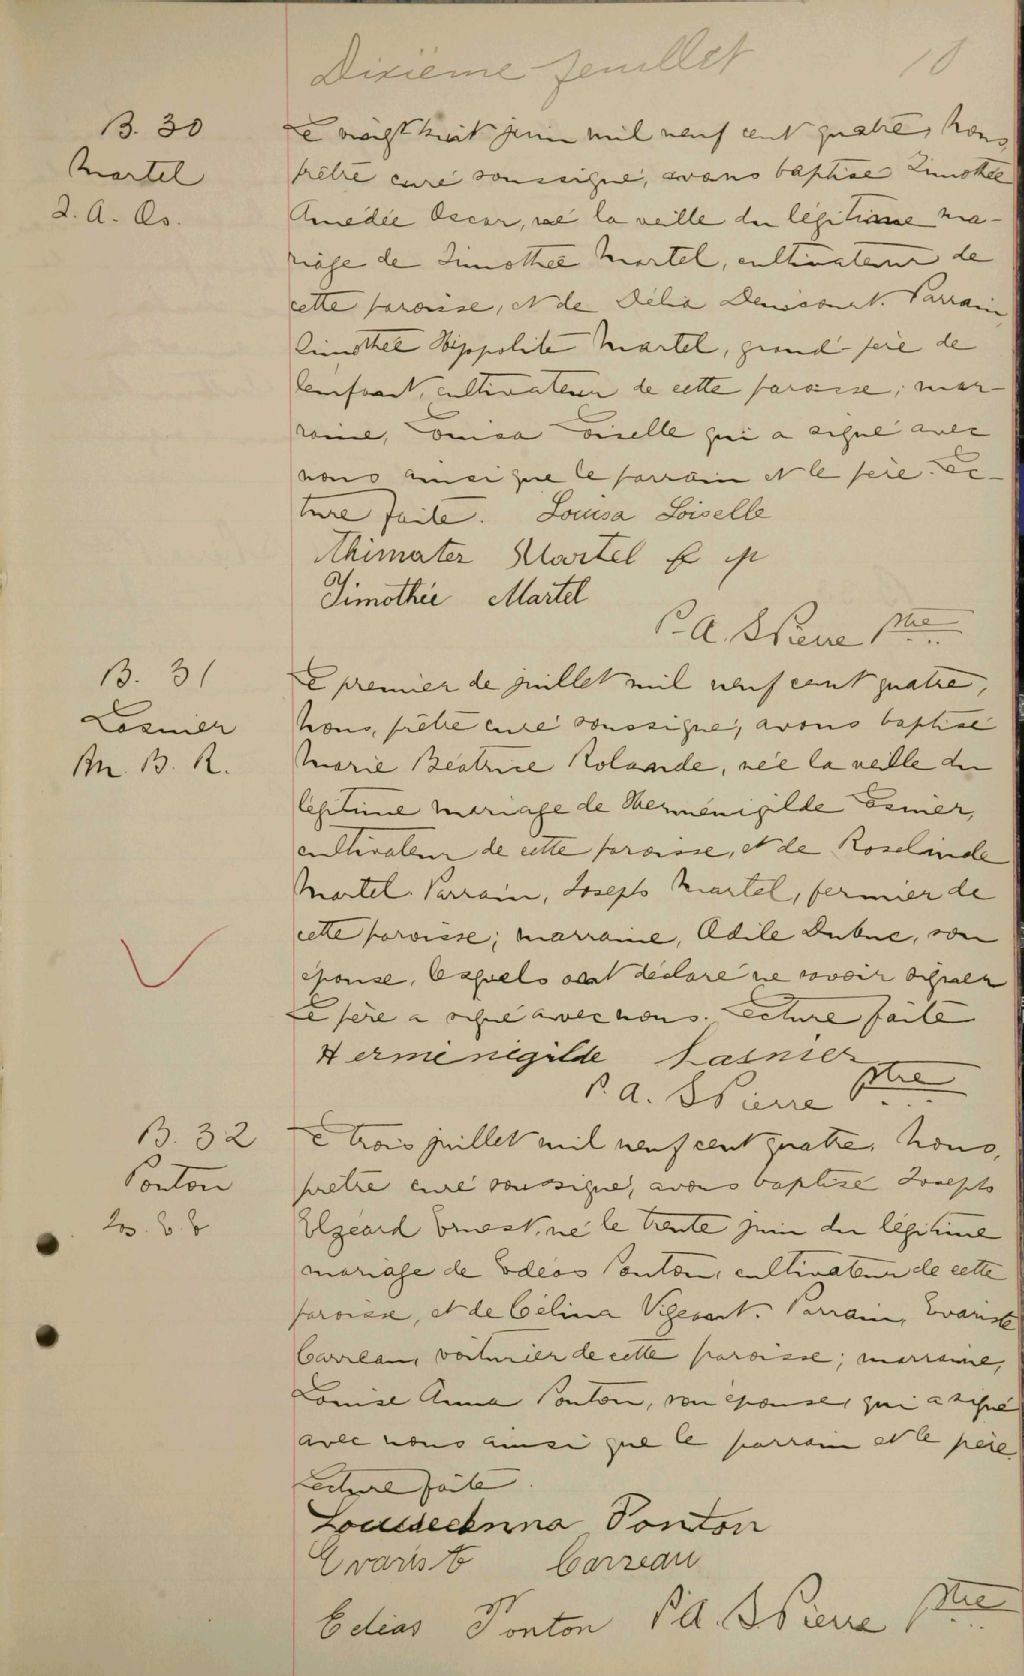 Dixième feuillet 10
B. 30
Martel
T. A. Os.
Le vingt huit juin mil neuf cent quatre, Nous,
prêtre curé soussigné, avons baptisé Timothée
Amédée Oscar, né la veille du légitime ma-
riage de Timothée Martel, cultivateur de
cette paroisse, et de Délia Denicourt. Parrain,
Timothée Hippolite Martel, grand-père de
l'enfant, cultivateur de cette paroisse; mar-
raine, Louisa Loiselle qui a signé avec
nous ainsi que le parrain et le père. Lec-
ture faite. Louisa Loiselle
Thimater Martel
Timothée Martel
P. A. S Pierre Ptre
B. 31
Lasnier
M. B. R.
Le premier de juillet mil neuf cent quatre,
Nous, prêtre curé soussigné, avons baptisé
Marie Béatrice Rolande, née la veille du
légitime mariage de Herménigilde Lasnier,
cultivateur de cette paroisse, et de Roselinde
Martel. Parrain, Joseph Martel, fermier de
cette paroisse; marraine, Odile Dubuc, son
épouse, lesquels ont déclaré ne savoir signer
Le père a signé avec nous. Lecture faite
Herménigilde Lasnier
P. A. S Pierre Ptre
B. 32
Ponton
Jos. E. E
Le trois juillet mil neuf cent quatre, Nous,
prêtre curé soussigné, avons baptisé Joseph
Elzéard Ernest, né le trente juin du légitime
mariage de Edéas Ponton, cultivateur de cette
paroisse, et de Célina Vigeant. Parrain, Evariste
Carreau, voiturier de cette paroisse; marraine,
Louise Anna Ponton, son épouse, qui a signé
avec nous ainsi que le parrain et le père.
Lecture faite.
Louise Anna Ponton
Evariste Carreau
Edéas Ponton P. A. S Pierre Ptre